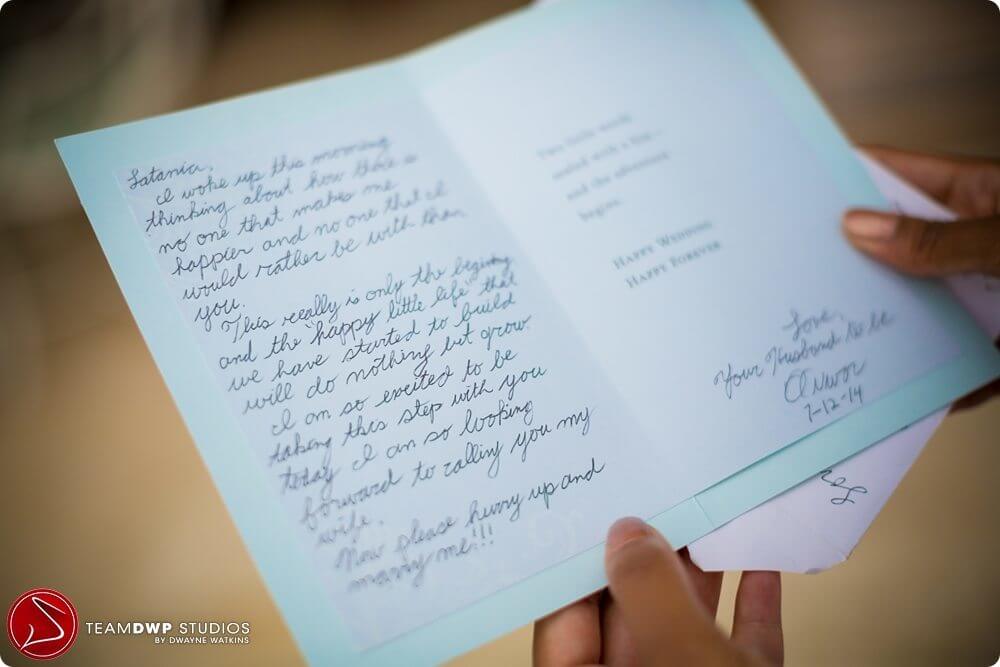 Latania,
I woke up this morning
thinking about how there is
no one that makes me
happier and no one that I
would rather be with than
you.
This really is only the beginning
and the "happy little life" that
we have started to build
will do nothing but grow.
I am so excited to be
taking this step with you
today I am so looking
forward to calling you my
wife.
Now please hurry up and
marry me!!!
Two little words
sealed with a kiss—
and the adventure
begins.
Happy Wedding
Happy Forever
Love,
Your Husband to be
7-12-14
TEAMDWP STUDIOS
BY DWAYNE WATKINS